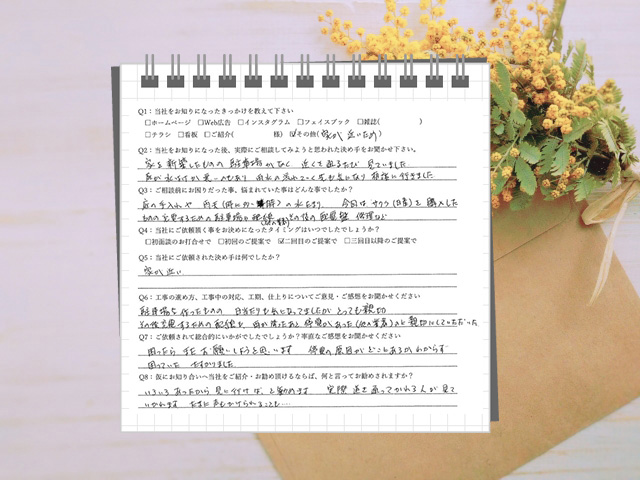 Q1：当社をお知りになったきっかけを教えて下さい
□ホームページ □Web広告 □インスタグラム □フェイスブック □雑誌( )
□チラシ □看板 □ご紹介( 様) ☑その他(家が近いため)
Q2：当社をお知りになった後、実際にご相談してみようと思われた決め手をお聞かせ下さい。
家を新築したものの 駐車場がなく 近くを通るたび 見ていました
Q3：ご相談前にお困りだった事、悩まれていた事はどんな事でしたか？
庭の手入れや 雨天 の水たまり、 今回は サクラ(日産)を購入した
Q4：当社にご依頼頂く事をお決めになったタイミングはいつでしたでしょうか？
□初面談のお打合せで □初回のご提案で ☑二回目のご提案で □三回目以降のご提案で
Q5：当社にご依頼された決め手は何でしたか？
家が近い
Q6：工事の進め方、工事中の対応、工期、仕上りについてご意見・ご感想をお聞かせください
駐車場を作ったものの 日当たりも気になってましたが とっても親切
Q7：ご依頼されて総合的にいかがでしたでしょうか？率直なご感想をお聞かせください
困ったら またお願いしようと思います 停電の原因がどこにあるかわからず
困っていた たすかりました
Q8：仮にお知り合いへ当社をご紹介・お勧め頂けるならば、何と言ってお勧めされますか？
いろいろあったから 見に行けば、と勧めます 実際 道を通ってかれる人が 見て
いかれます たまに声もかけられることも….